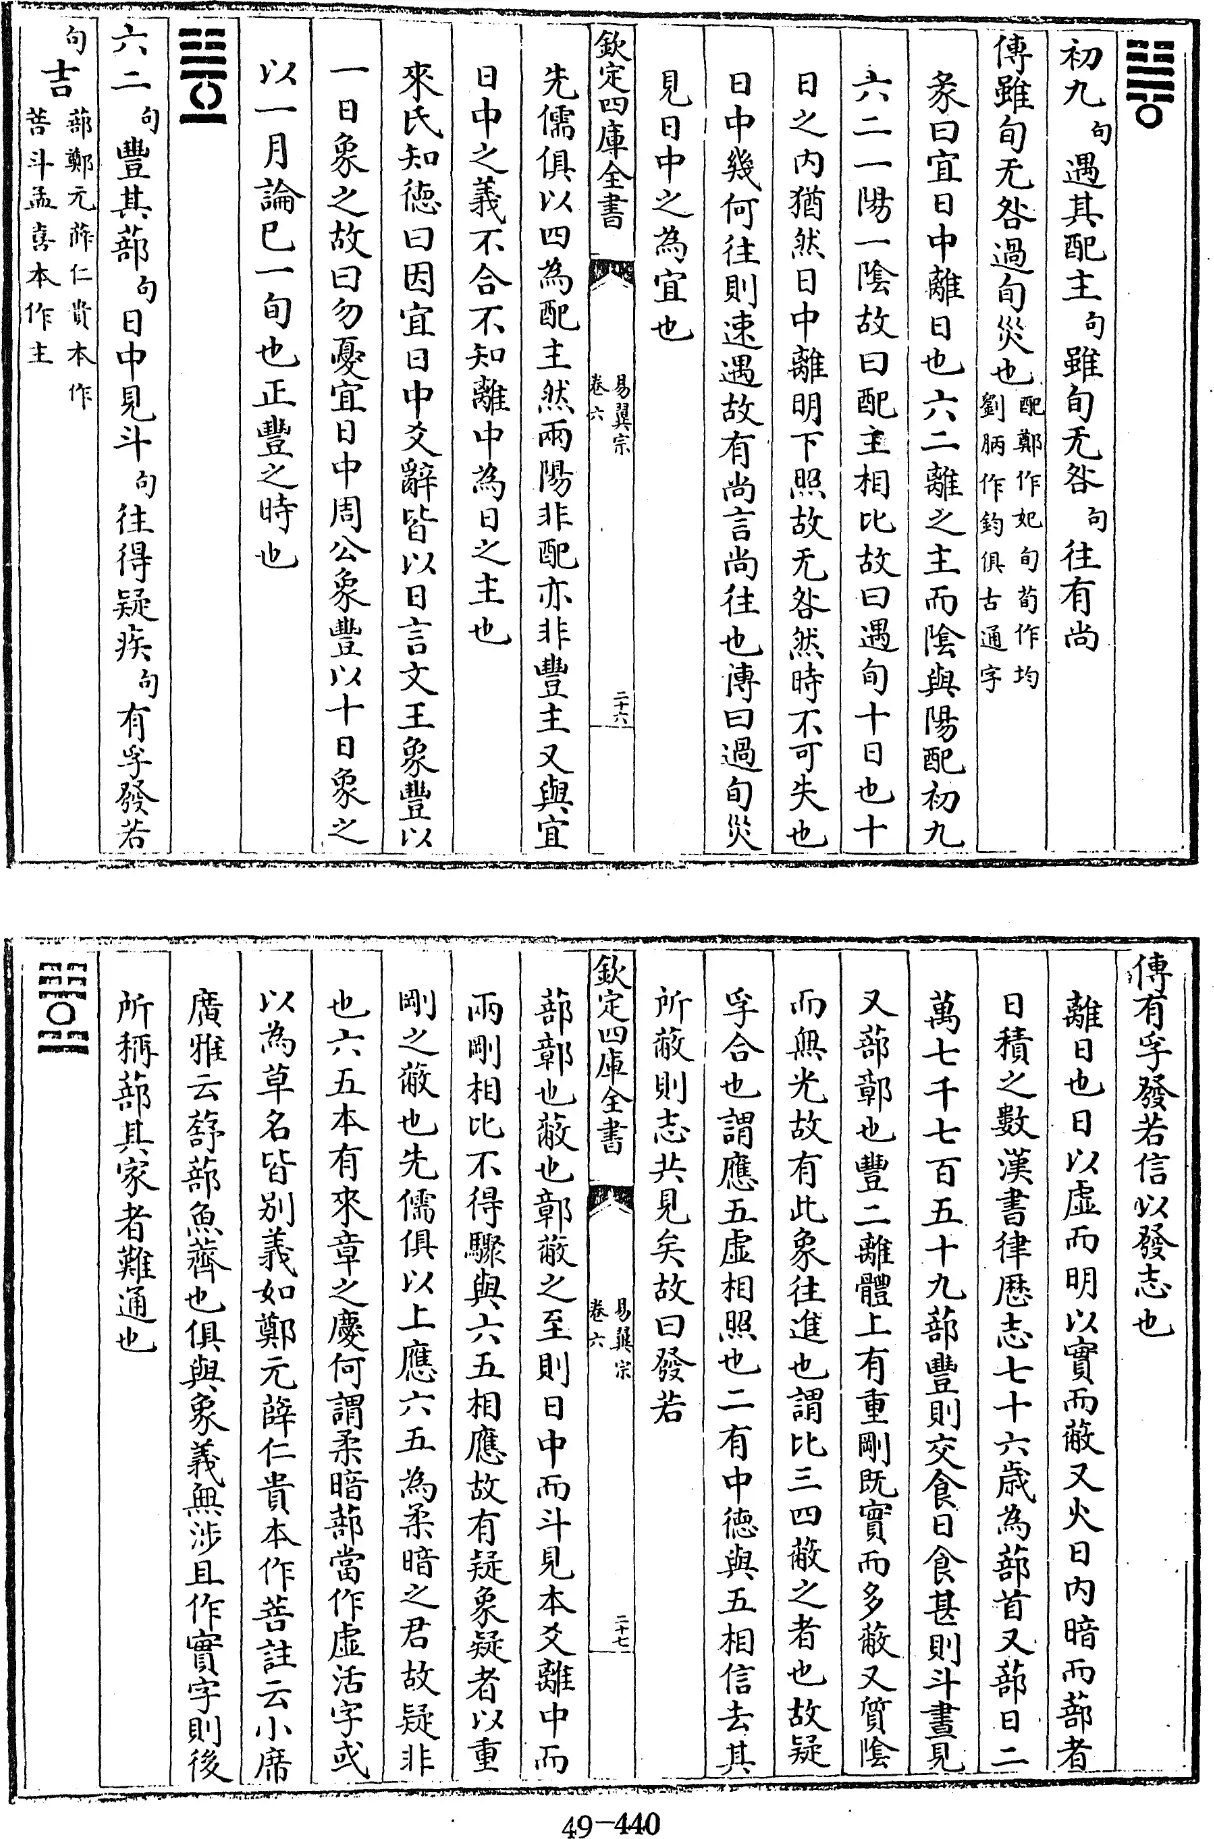 初九句遇其配主句雖旬无咎句往有尚
傳雖旬无咎過旬災也配鄭作妃旬荀作均
劉昞作鈞俱古通字
彖曰宜日中離日也六二離之主而陰與陽配初九
六二一陽一陰故曰配主相比故曰遇旬十日也十
日之内猶然日中離明下照故无咎然時不可失也
日中幾何往則速遇故有尚言尚往也傳曰過旬災
見日中之為宜也
欽定四庫全書
易翼宗
卷六
二十六
先儒俱以四為配主然兩陽非配亦非豐主又與宜
日中之義不合不知離中為日之主也
來氏知德曰因宜日中爻辭皆以日言文王象豐以
一日象之故曰勿憂宜日中周公象豐以十日象之
以一月論已一旬也正豐之時也
六二句豐其蔀句日中見斗句往得疑疾句有孚發若
句吉蔀鄭元薛仁貴本作
菩斗孟喜本作主
傳有孚發若信以發志也
離日也日以虛而明以實而蔽又火日内暗而蔀者
日積之數漢書律歴志七十六歲為蔀首又蔀日二
萬七千七百五十九蔀豐則交食日食甚則斗晝見
又蔀鄣也豐二離體上有重剛既實而多蔽又質陰
而無光故有此象往進也謂比三四蔽之者也故疑
孚合也謂應五虛相照也二有中德與五相信去其
所蔽則志共見矣故曰發若
欽定四庫全書
易翼宗
卷六
二十七
蔀鄣也蔽也鄣蔽之至則日中而斗見本爻離中而
兩剛相比不得驟與六五相應故有疑象疑者以重
剛之蔽也先儒俱以上應六五為柔暗之君故疑非
也六五本有來章之慶何謂柔暗蔀當作虛活字或
以為草名皆别義如鄭元薛仁貴本作菩註云小席
廣雅云䔑蔀魚薺也俱與象義無涉且作實字則後
所稱蔀其家者難通也
49-440